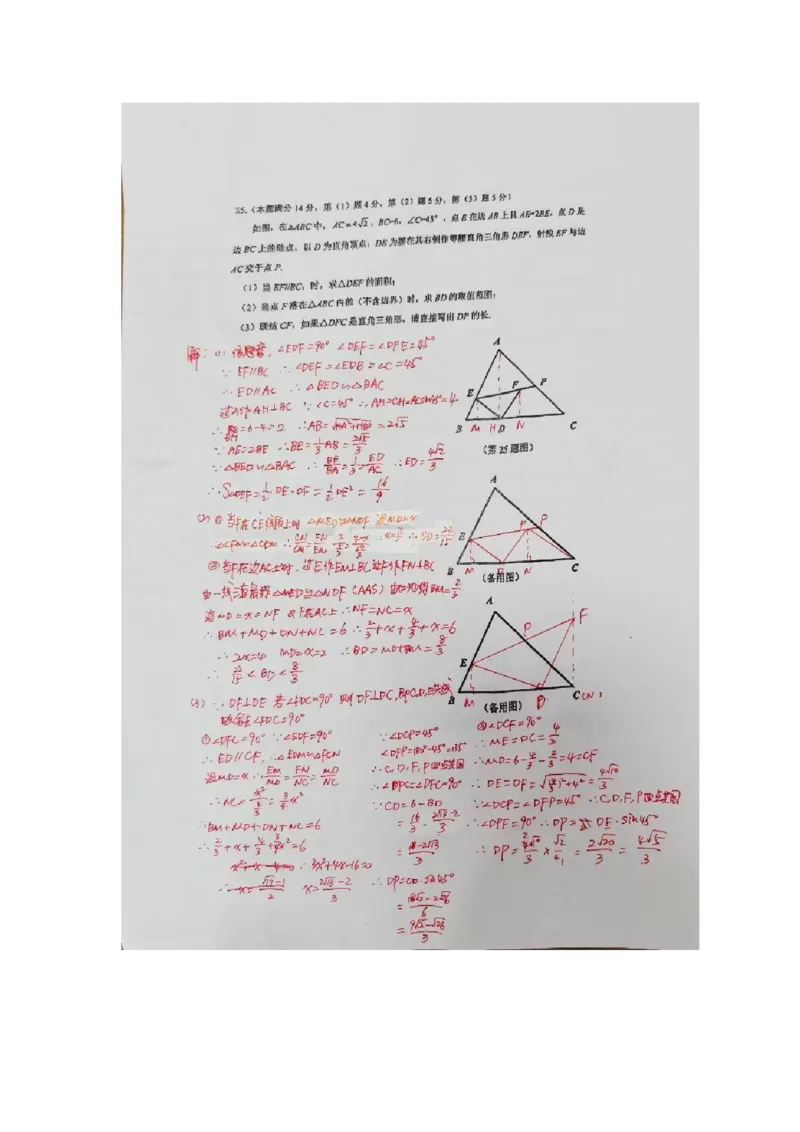 25.（本题满分 14 分，第（1）题 4 分，第（2）题 5 分，第（3）题 5 分）
如图，在△ABC 中，AC=4√2，BC=6，∠C=45°，点 E 在边 AB 上且 AE=2BE，点 D 是
边 BC 上的动点，以 D 为直角顶点，DE 为腰在其右侧作等腰直角三角形 DEF，射线 EF 与边
AC 交于点 P.
（1）当 EF∥BC，时，求△DEF 的面积；
（2）当点 F 落在△ABC 内部（不含边界）时，求 BD 的取值范围；
（3）联结 CF，如果△DFC 是直角三角形，请直接写出 DP 的长.
解：(1) 依题意，∠EDF=90° ∠DEF=∠DFE=45°
∵EF∥BC ∴∠DEF=∠EDB=∠C=45°
∴ED∥AC ∴△BED∽△BAC
过A作AH⊥BC ∵∠C=45° ∴AH=CH=ACsin45°=4
=6-4=2 ∴AB= =2√5
∵AE=2BE ∴BE=1/3AB=2√5/3
∵△BED∽△BAC ∴BE/BA=1/3=ED/AC ∴ED=4√2/3
∴S△DEF=1/2·DE·DF=1/2DE²=16/9
A
E
F
P
B
M
H
D
N
C
（第 25 题图）
(2) ① 当F在CE线段上时 △MED≌△NDF 设MD=x
∴△CFN∽△CEM ∴CN/CM=FN/EM
② 当F在边AC上时，过E作EM⊥BC 过F作FN⊥BC
由一线三直角得△MED≌△NDF（AAS）由 BM=2/3
设MD=x=NF 点F在AC上 ∴NF=NC=x
∴BM+MD+DN+NC=6 ∴2/3+x+4/3+x=6
∴2x=4 MD=x=2 ∴BD=MD+BM=8/3
∴ <BD<8/3
A
F
P
E
B
M
D
N
C
（备用图）
A
F
P
E
B
M
D
C(N)
（备用图）
(3) ∵DF⊥DE 若∠FDC=90° 则DF⊥DC,
∠FDC=90°
① ∠DFC=90° ∵∠EDF=90°
∴ED∥CF, ∴△EDM∽△FCN
设MD=x ∴EM/MD=FN/NC=MD/NC
∴NC=x²/(4/3)=3/4x²
∴BM+MD+DN+NC=6
∴2/3+x+4/3+3/4x²=6
∴3x²+4x-16=0
x=(2√13-2)/3
∵∠DCP=45°
∠DFP=180°-45°=135°
∴C,D,F,P四点共圆
∴∠DPC=∠DFC=90°
∵CD=6-BD
=16/3-(2√13-2)/3
=(18-2√13)/3
∴DP=CD·sin45°
=(18√2-2√26)/6
=(9√2-√26)/3
② ∠DCF=90°
∴ME=DC=4/3
∴MD=6-4/3-2/3=4=CF
∴DE=DF=√((4/3)²+4²)=4√10/3
∵∠DCP=∠DFP=45° ∴C,D,F,P四点共圆
∴∠DPF=90° ∴DP= DE·sin45°
∴DP=4√10/3×√2/2=2√20/3=4√5/3